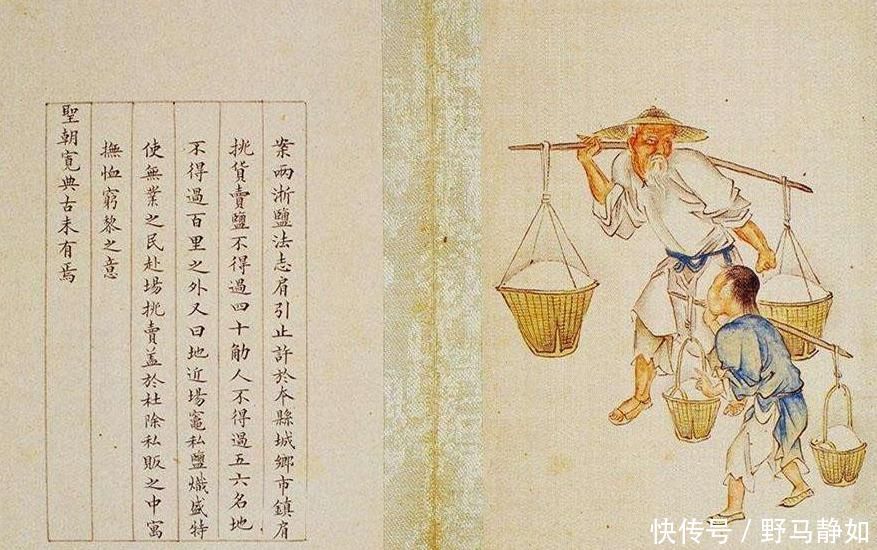 案兩浙鹽法志肩引止許於本縣城鄉市鎮肩
挑貨賣鹽不得過四十觔人不得過五六名地
不得過百里之外又曰地近場竈私鹽熾盛特
使無業之民赴場挑賣蓋於杜除私販之中寓
撫恤窮黎之意
聖朝寬典古未有焉
快传号 / 野马静如